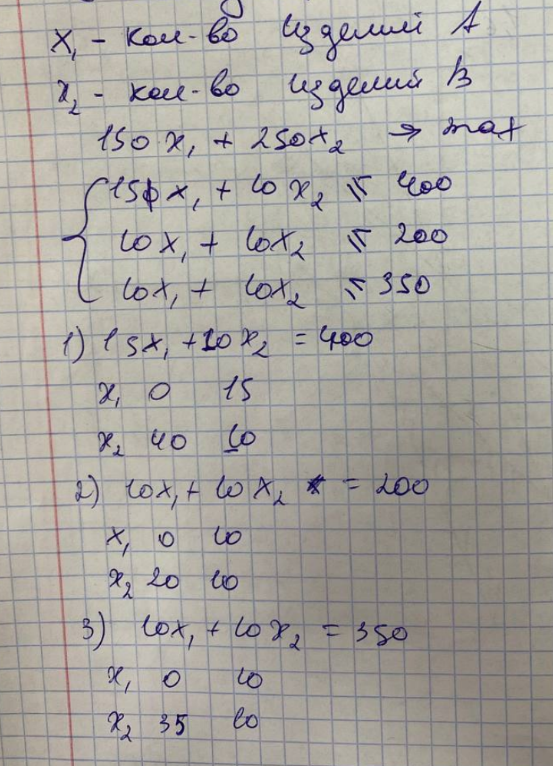 x₁ - кол-во изделий А
x₂ - кол-во изделий В
150 x₁ + 250x₂ → max
15x₁ + 10 x₂ ≤ 400
10x₁ + 10x₂ ≤ 200
10x₁ + 10x₂ ≤ 350
1) 15x₁ + 10x₂ = 400
x₁ 0 15
x₂ 40 10
2) 10x₁ + 10x₂ = 200
x₁ 0 10
x₂ 20 10
3) 10x₁ + 10x₂ = 350
x₁ 0 10
x₂ 35 10